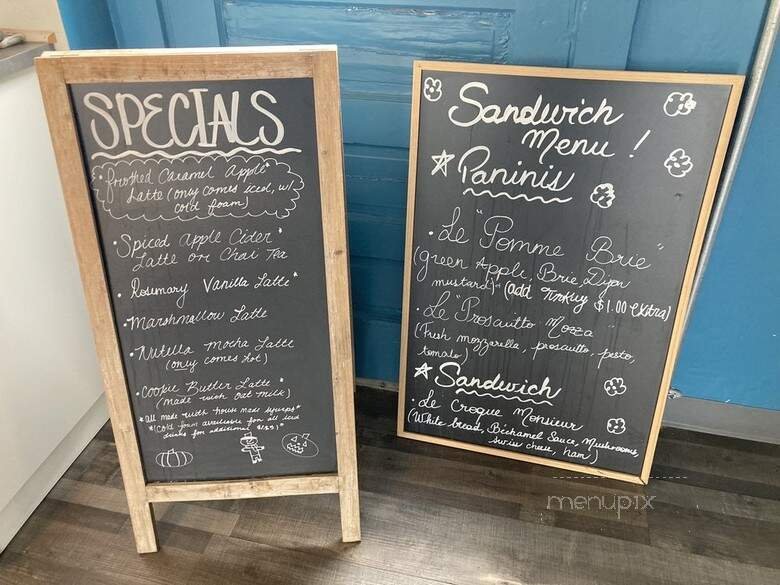 SPECIALS
• frothed Caramel Apple*
Latte (only comes iced, w/
cold foam)
• Spiced Apple Cider*
Latte or Chai Tea
• Rosemary Vanilla Latte*
• Marshmallow Latte
• Nutella Mocha Latte
(only comes hot)
• Cookie Butter Latte*
(made with oat milk)
*all made with house made syrups*
*!Cold foam available for all iced
drinks for additional
Sandwich
Menu!
Paninis
• Le "Pomme Brie"
(green Apple, Brie, Dijon
mustard)* (add Turkey $1.00 extra)
• Le "Proscuitto Mozza"
(Fresh mozzarella, proscuitto, pesto,
tomato)
Sandwich
• Le Croque Monsieur
(White bread, Bechamel Sauce, Mushrooms,
swiss cheese, ham)
menupix